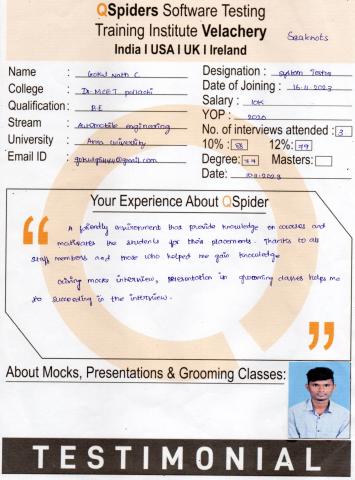 QSpiders Software Testing
Training Institute Velachery
India I USA I UK I Ireland
Name : Gokul Nath C
College : Dr MCET pollachi
Qualification : B.E
Stream : Automobile engineering
University : Anna university
Email ID :
Designation : System Tester
Date of Joining : 16.11.2023
Salary : 10K
YOP : 2020
No. of interviews attended : 3
10% : 12% : 79
Degree: 77 Masters:
Date:
Your Experience About QSpider
A friendly environment that provide knowledge on courses and
motivates the students for their placements. Thanks to all
staff members and those who helped me gain knowledge
Giving mocks interview, presentation in grooming classes helps me
to succeeding in the interview.
About Mocks, Presentations & Grooming Classes:
TESTIMONIAL